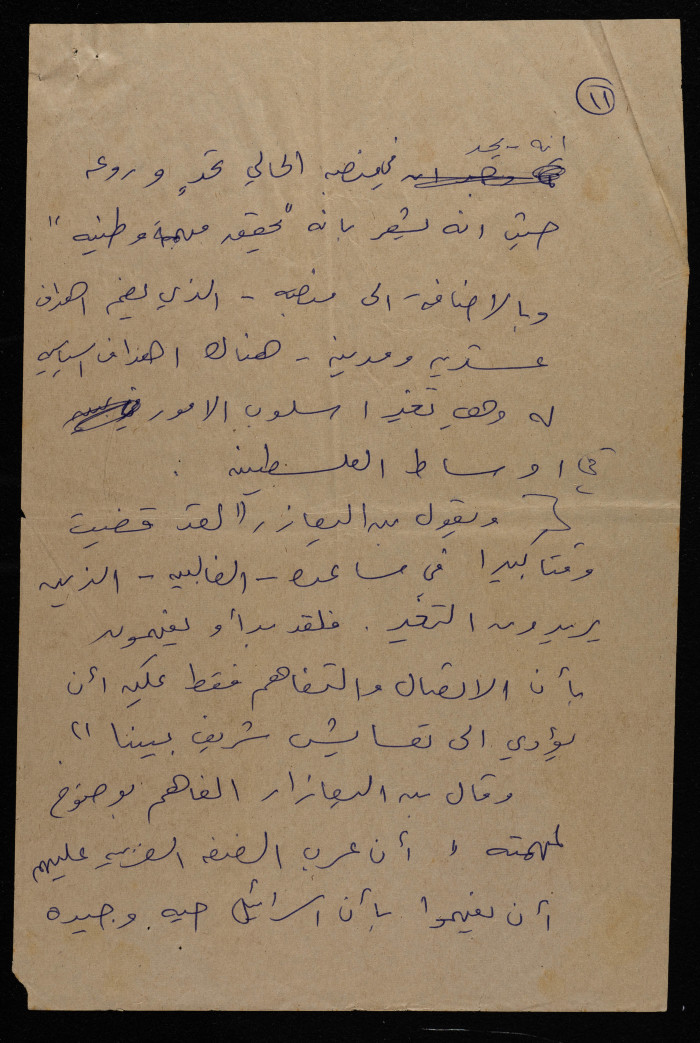 ١١
انه يجد
في منصبه الحالي تحدٍ وروعه
حتى انه يشعر بانه "يحقق مهمة وطنيه"
وبالاضافة الى منصبه - الذي يضم اهداف
عسكريه ومدنيه - هناك اهداف سياسيه
له وهي تغير اسلوب الامور
في اوساط الفلسطينيه .
ويقول بن اليعازر "لقد قضيت
وقتا كبيرا في مساعدة - الغالبيه - الذين
يريدون التغير . فلقد بدأو يفهمون
بأن الاتصال والتفاهم فقط عليه أن
يؤدي الى تعايش شريف بيننا"
وقال بن اليعازار الفاهم بوضوح
لمهمته ، أن عرب الضفه الغربيه عليهم
أن يفهموا بأن اسرائيل حيه وجيده